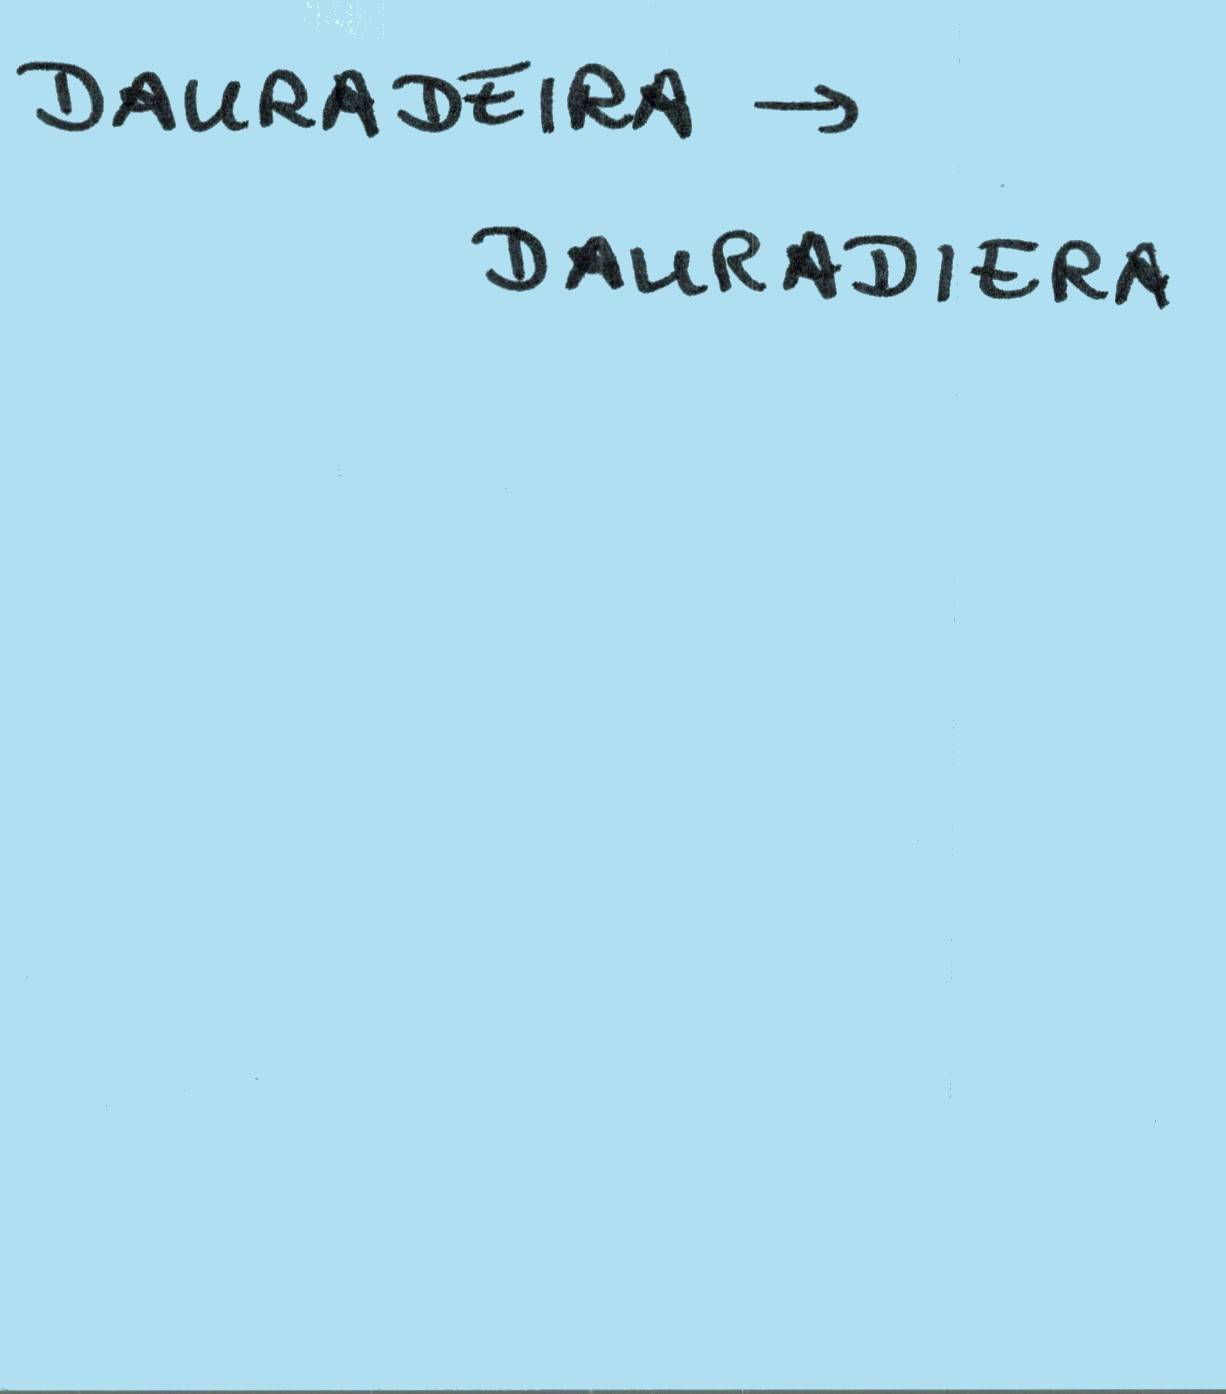 DAURADEIRA →
DAURADIERA